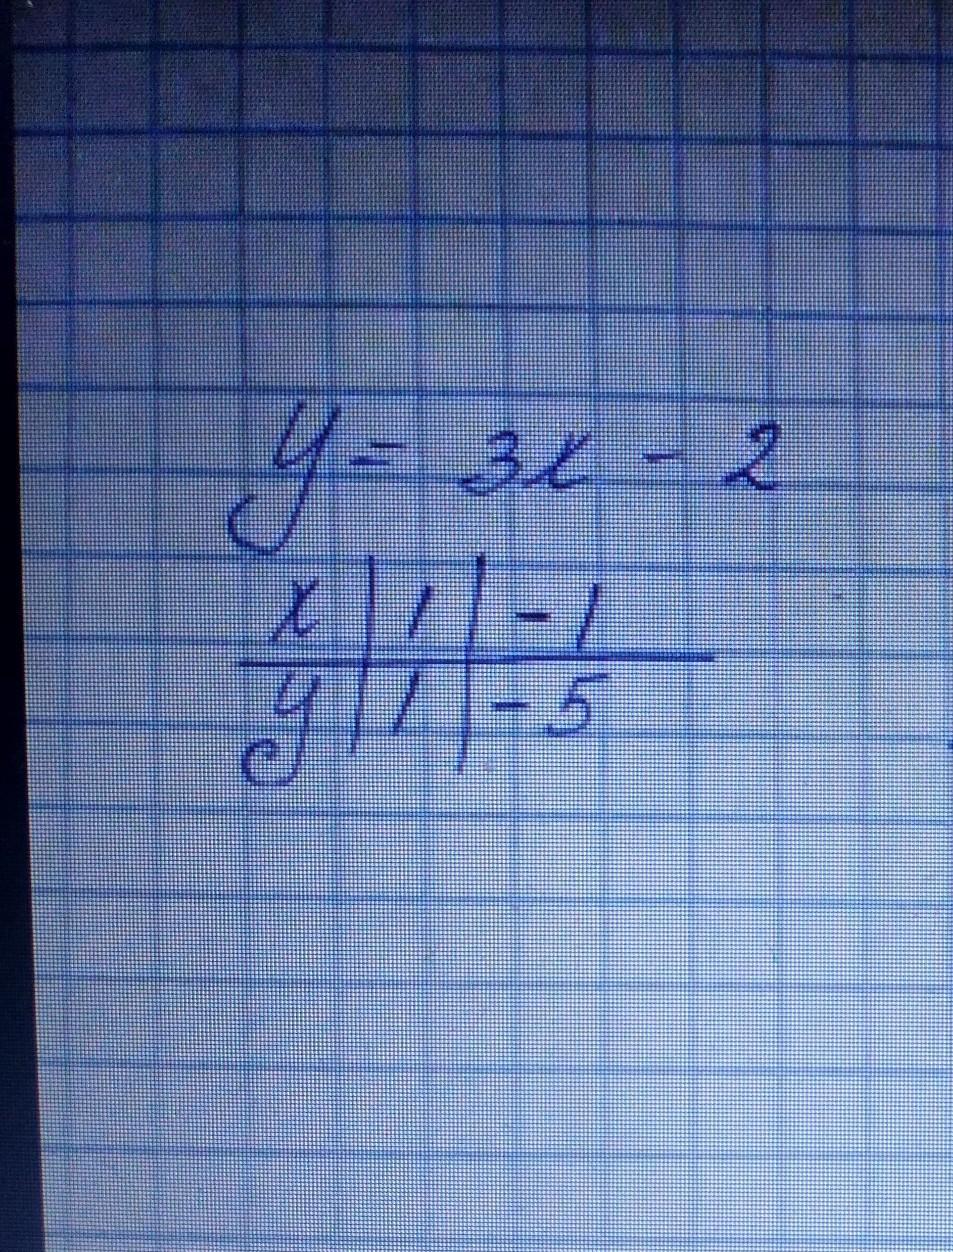 y = 3x - 2
x | 1 | -1
y | 1 | -5